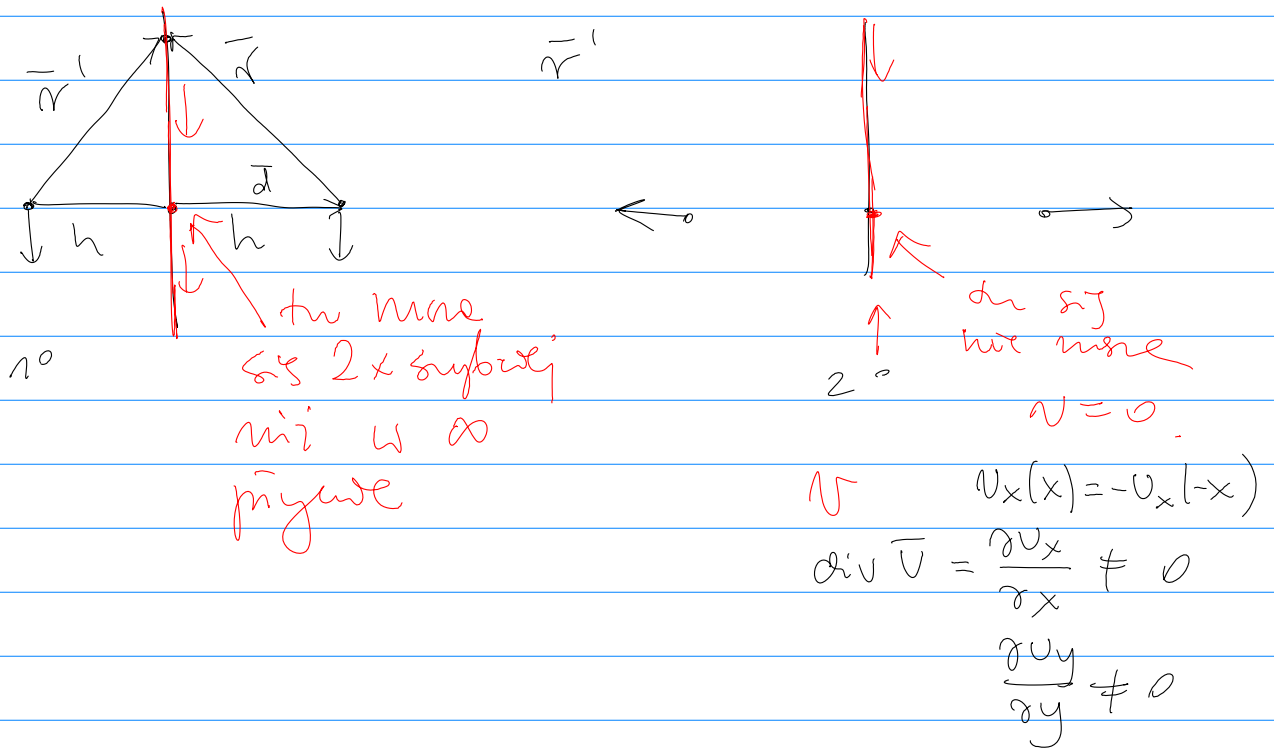 r̄' r̄ r̄'
d̄
h h
tu może
się 2x szybciej
niż w ∞
płynie
1°
tu się
nie może
2°
v = 0.
v vₓ(x) = -vₓ(-x)
div v̄ = ∂vₓ/∂x ≠ 0
∂v_y/∂y ≠ 0